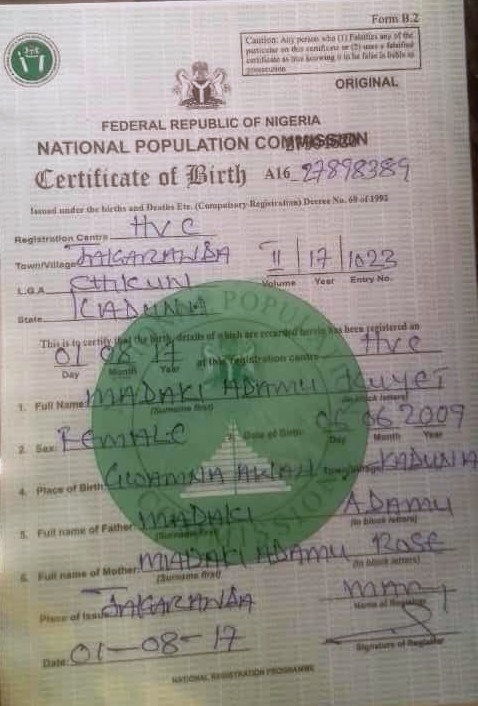 Form B.2
Caution: Any person who (1) Falsifies any of the
particular on this certificate or (2) uses a falsified
certificate as true knowing it to be false is liable to
prosecution
ORIGINAL
FEDERAL REPUBLIC OF NIGERIA
NATIONAL POPULATION COMMISSION
Certificate of Birth A16_27898389
Issued under the births and Deaths Etc. (Compulsory Registration) Decree No. 69 of 1992
Registration Centre HVC
Town/Village JAKARANDA II 17 1023
Volume Year Entry No.
L.G.A. CHIKUN
State KADUNA
This is to certify that the birth, details of which are recorded herein has been registered on
01 08 17 at this registration centre HVC
Day Month Year
1. Full Name: MADAKI ADAMU KUYET
(Surname first) (In block letters)
2. Sex: FEMALE 3. Date of Birth: 06 06 2009
Day Month Year
4. Place of Birth: GWAMNA AWAN Town/Village KADUNA
5. Full name of Father: MADAKI ADAMU
(Surname first) (In block letters)
6. Full name of Mother: MADAKI ADAMU ROSE
(Surname first) (In block letters)
Place of Issue JAKARANDA
Name of Registrar
Date: 01-08-17
Signature of Registrar
NATIONAL REGISTRATION PROGRAMME